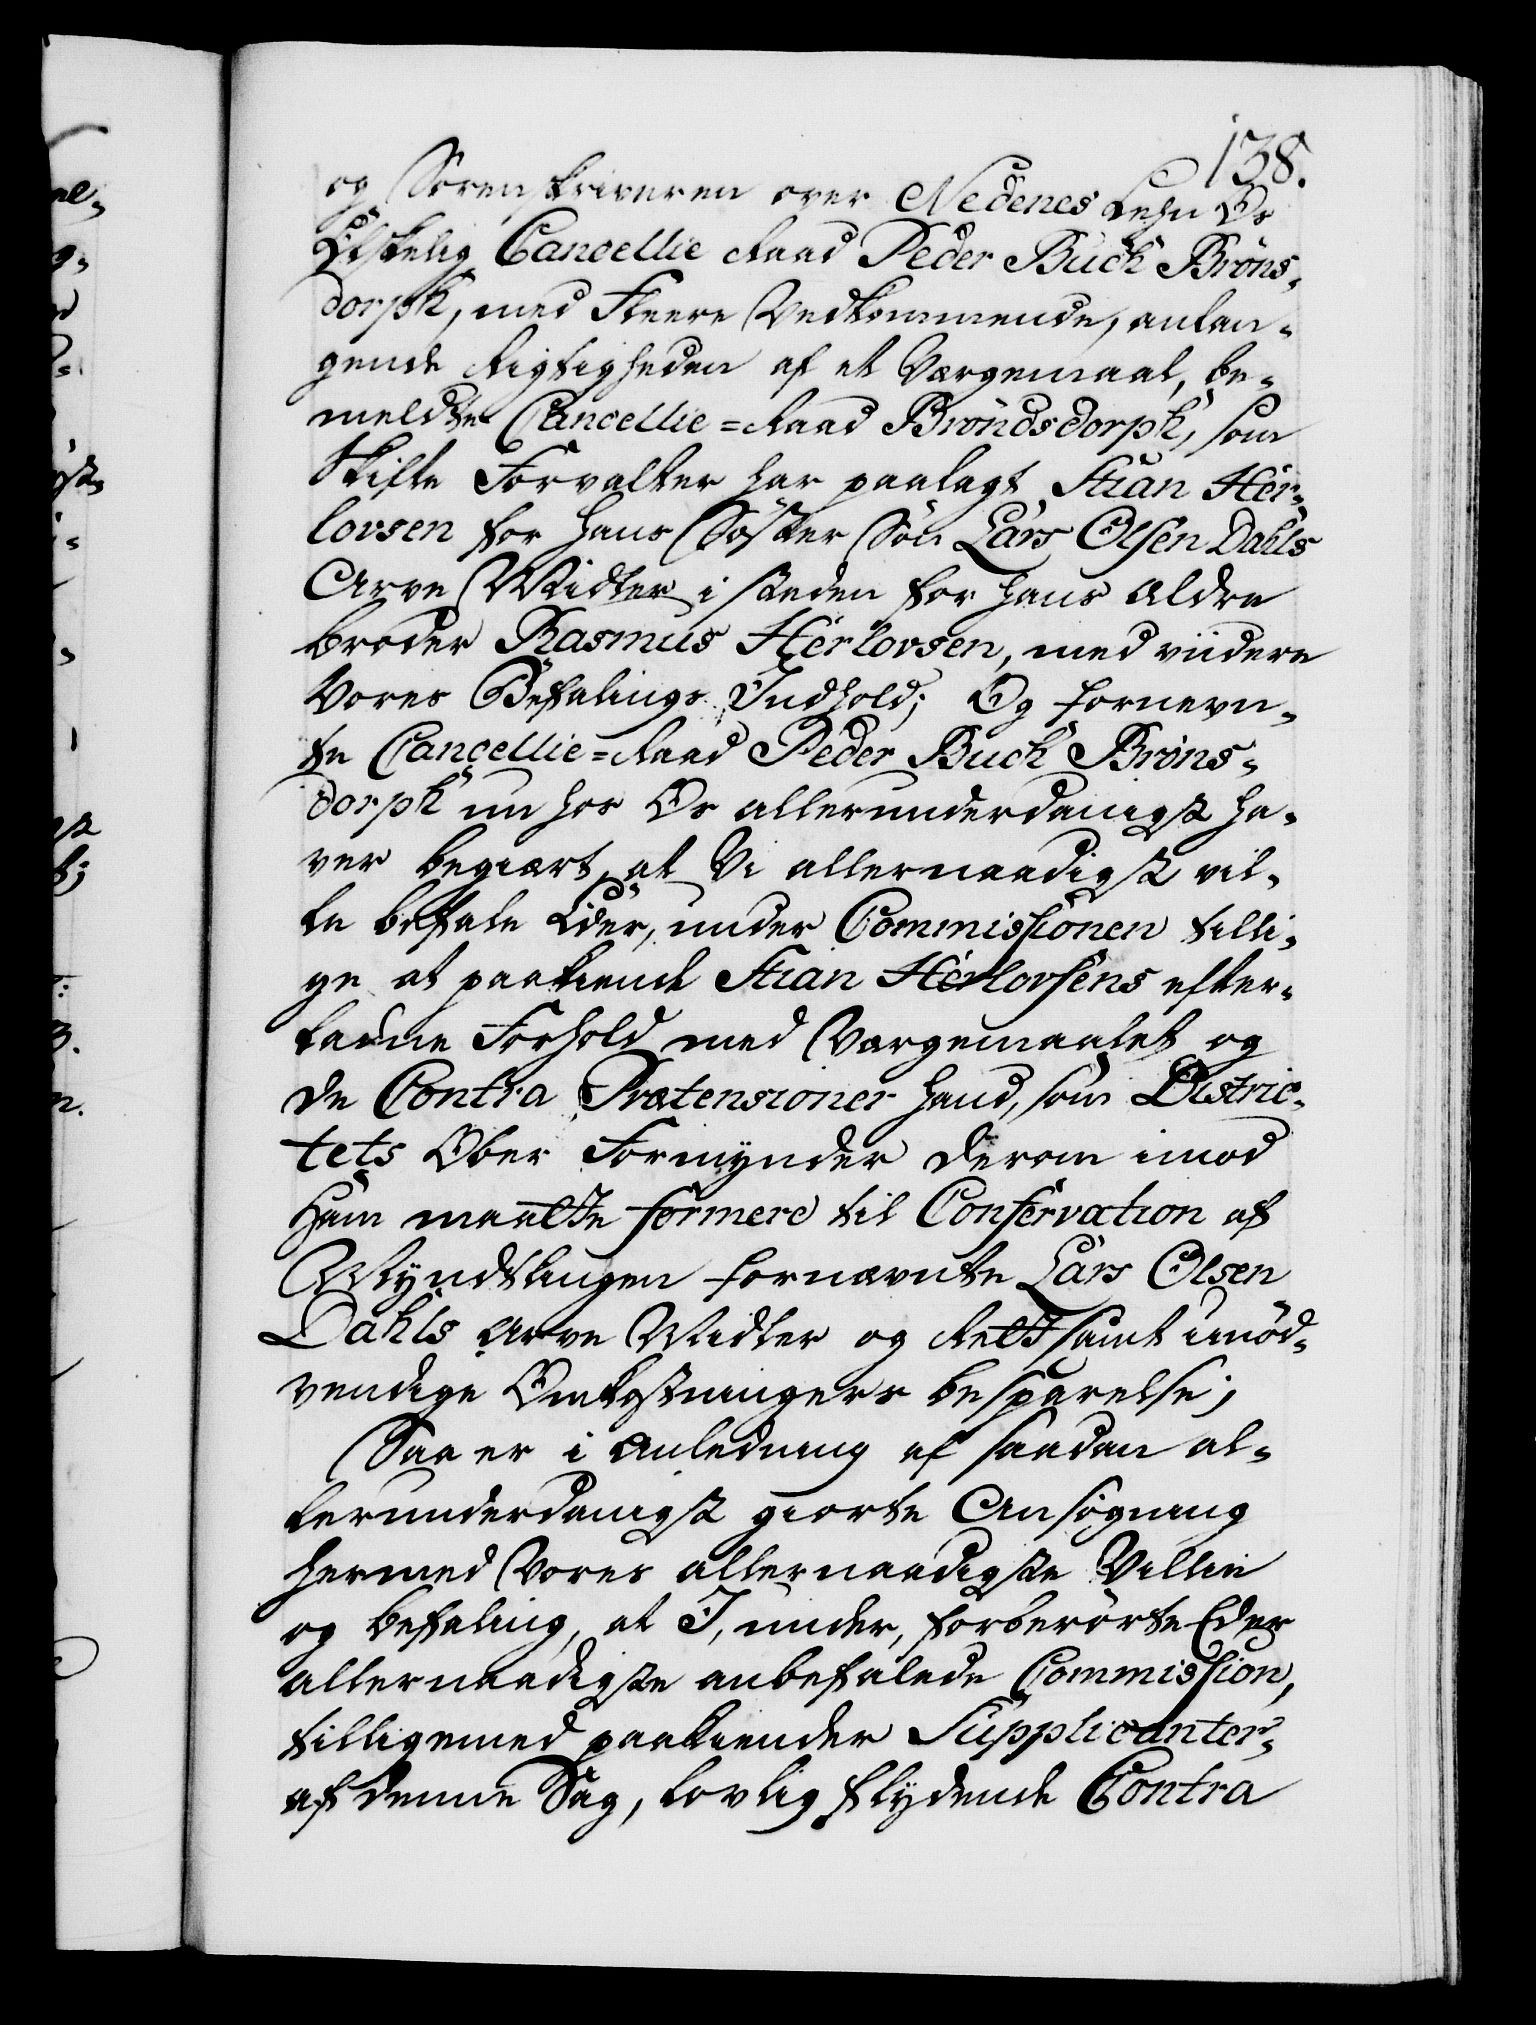 138.
og Sorenskriveren over Nedenes Lehn Os
Elskelig Cancellie Raad Peder Buch Bröns-
dorph, med Fleere Vedkommende, anlan-
gende Rigtigheden af et Værgemaal, be-
meldte Cancellie=Raad Bröndsdorph, som
Skifte Forvalter har paalagt Stian Her-
lovsen for hans Söster Sön Lars Olsen Dahls
Arve Midler i steden for hans ældre
broder Rasmus Herlovsen, med viidere
Vores Befalings Indhold; Og fornevn-
te Cancellie=Raad Peder Buch Bröns-
dorph nu hos Os allerunderdanigst ha-
ver begiært, at Vi allernaadigst vil-
le befale Eder, under Commissionen tilli-
ge at paakiende Stian Herlovsens efter-
ladne Forhold med Værgemaalet og
de Contra Prætensioner hand, som Distric-
tets Ober Formynder derom imod
ham maatte formere til Conservation af
Myndtlingen fornævnte Lars Olsen
Dahls Arve Midler og Rettsamt unöd-
vendige Omkostningers besparelse;
Saa er i Anledning af saadan al-
lerunderdanigst giorte Ansögning
hermed Vores allernaadigste Villie
og befaling, at I, under, forberörte Eder
allernaadigste anbefalede Commission,
tilligemed paakiender Supplicanter-
af denne Sag, lovlig flydende Contra